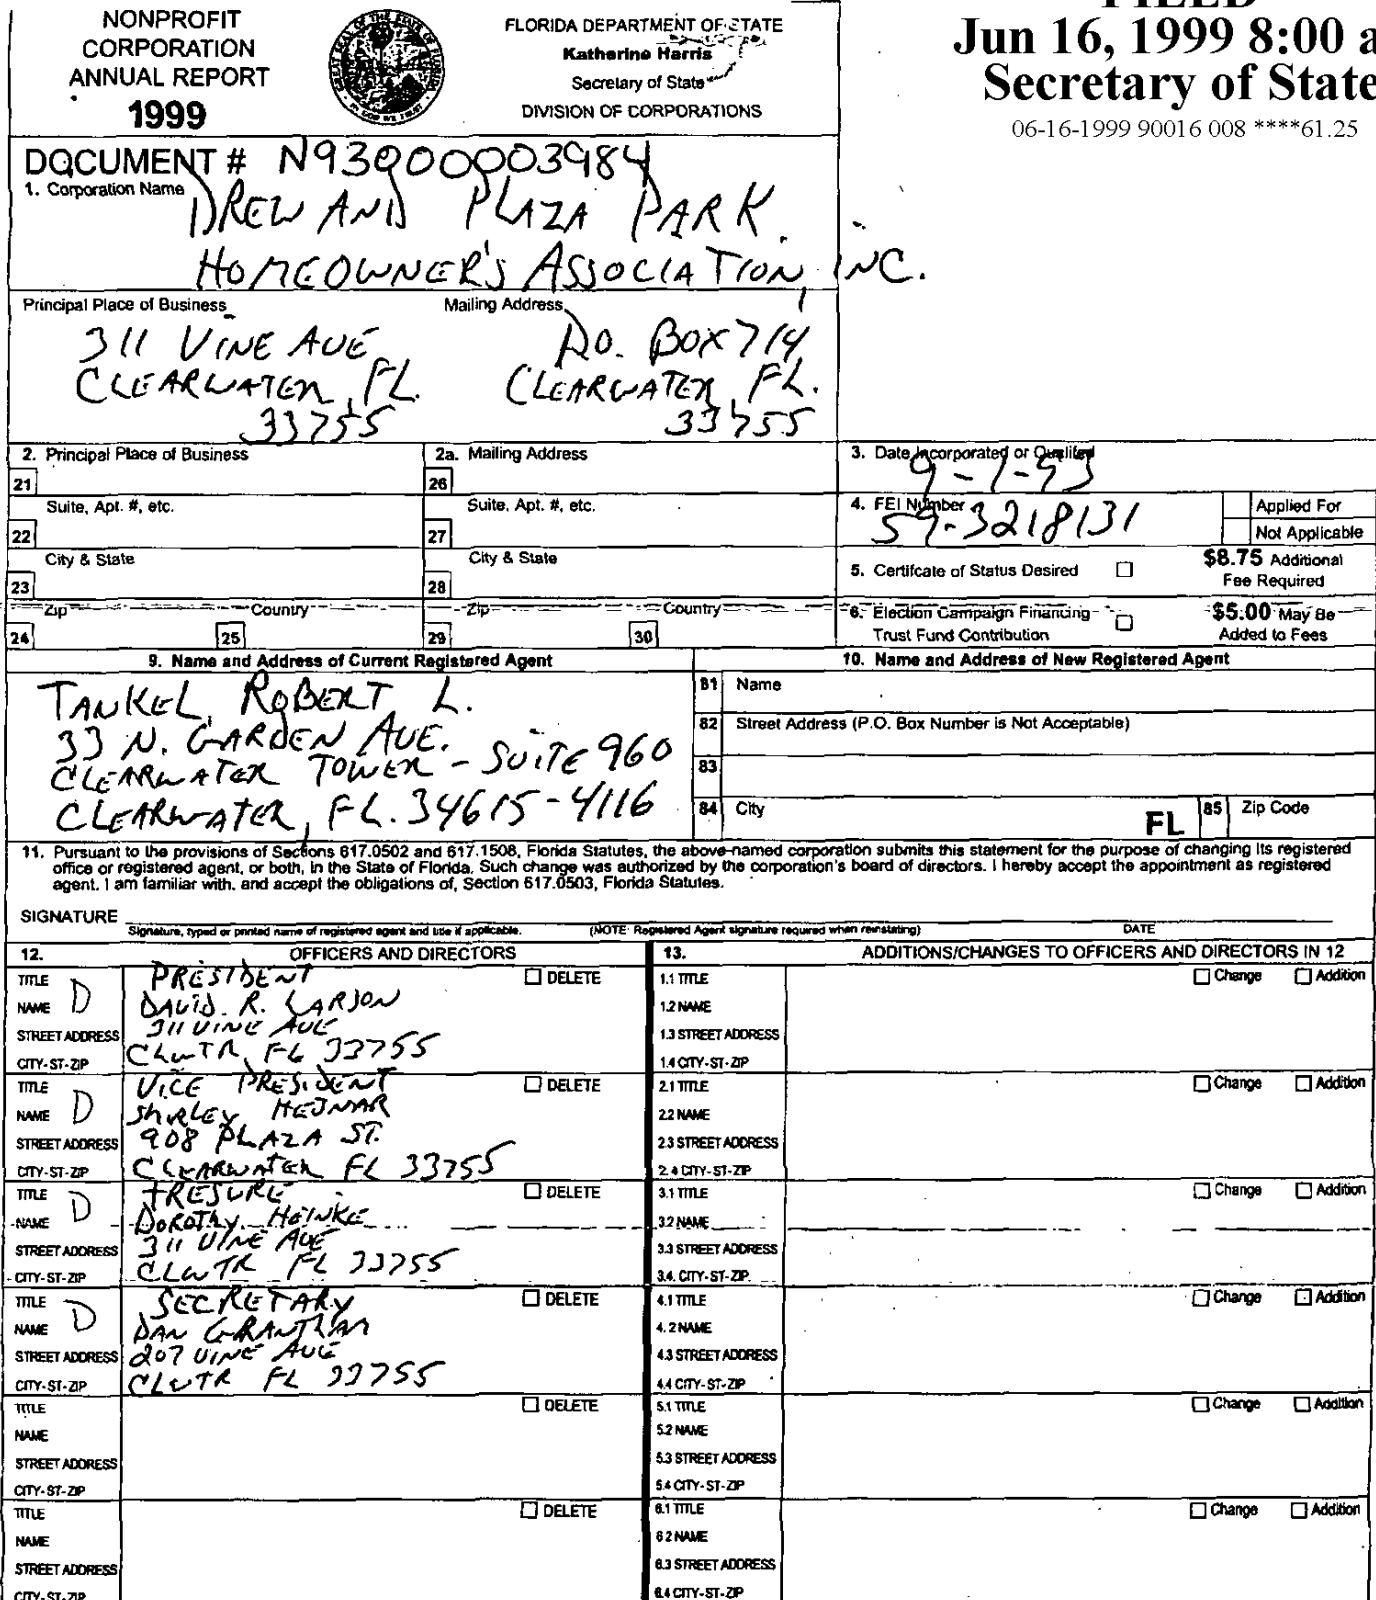 NONPROFIT
CORPORATION
ANNUAL REPORT
1999
FLORIDA DEPARTMENT OF STATE
Katherine Harris
Secretary of State
DIVISION OF CORPORATIONS
FILED
Jun 16, 1999 8:00 a
Secretary of State
06-16-1999 90016 008 ****61.25
DOCUMENT # N93000003984
1. Corporation Name
DREW AND PLAZA PARK
HOMEOWNER'S ASSOCIATION, INC.
Principal Place of Business
311 VINE AVE
CLEARWATER, FL.
33755
Mailing Address
P.O. BOX 714
CLEARWATER FL.
33755
2. Principal Place of Business
2a. Mailing Address
21
26
Suite, Apt. #, etc.
Suite, Apt. #, etc.
22
27
City & State
City & State
23
28
Zip Country
Zip Country
24 25 29 30
3. Date Incorporated or Qualifed
9-1-93
4. FEI Number
59-3218131
Applied For
Not Applicable
5. Certifcate of Status Desired
$8.75 Additional
Fee Required
6. Election Campaign Financing
Trust Fund Contribution
$5.00 May Be
Added to Fees
9. Name and Address of Current Registered Agent
TANKEL, ROBERT L.
33 N. GARDEN AVE.
CLEARWATER TOWER - SUITE 960
CLEARWATER, FL. 34615-4116
10. Name and Address of New Registered Agent
81 Name
82 Street Address (P.O. Box Number is Not Acceptable)
83
84 City FL 85 Zip Code
11. Pursuant to the provisions of Sections 617.0502 and 617.1508, Florida Statutes, the above-named corporation submits this statement for the purpose of changing its registered
office or registered agent, or both, in the State of Florida. Such change was authorized by the corporation's board of directors. I hereby accept the appointment as registered
agent. I am familiar with, and accept the obligations of, Section 617.0503, Florida Statutes.
SIGNATURE
Signature, typed or printed name of registered agent and title if applicable. (NOTE: Registered Agent signature required when reinstating) DATE
12. OFFICERS AND DIRECTORS
13. ADDITIONS/CHANGES TO OFFICERS AND DIRECTORS IN 12
TITLE D PRESIDENT DELETE
NAME DAVID. R. LARSON
STREET ADDRESS 311 VINE AVE
CITY-ST-ZIP CLWTR, FL 33755
1.1 TITLE Change Addition
1.2 NAME
1.3 STREET ADDRESS
1.4 CITY-ST-ZIP
TITLE D VICE PRESIDENT DELETE
NAME SHIRLEY HEJMAR
STREET ADDRESS 908 PLAZA ST.
CITY-ST-ZIP CLEARWATER FL 33755
2.1 TITLE Change Addition
2.2 NAME
2.3 STREET ADDRESS
2.4 CITY-ST-ZIP
TITLE D TRESURE DELETE
NAME DOROTHY HEINKE
STREET ADDRESS 311 VINE AVE
CITY-ST-ZIP CLWTR FL 33755
3.1 TITLE Change Addition
3.2 NAME
3.3 STREET ADDRESS
3.4. CITY-ST-ZIP
TITLE D SECRETARY DELETE
NAME DAN GRANTHAM
STREET ADDRESS 207 VINE AVE
CITY-ST-ZIP CLWTR FL 33755
4.1 TITLE Change Addition
4.2 NAME
4.3 STREET ADDRESS
4.4 CITY-ST-ZIP
TITLE DELETE
NAME
STREET ADDRESS
CITY-ST-ZIP
5.1 TITLE Change Addition
5.2 NAME
5.3 STREET ADDRESS
5.4 CITY-ST-ZIP
TITLE DELETE
NAME
STREET ADDRESS
CITY-ST-ZIP
6.1 TITLE Change Addition
6.2 NAME
6.3 STREET ADDRESS
6.4 CITY-ST-ZIP